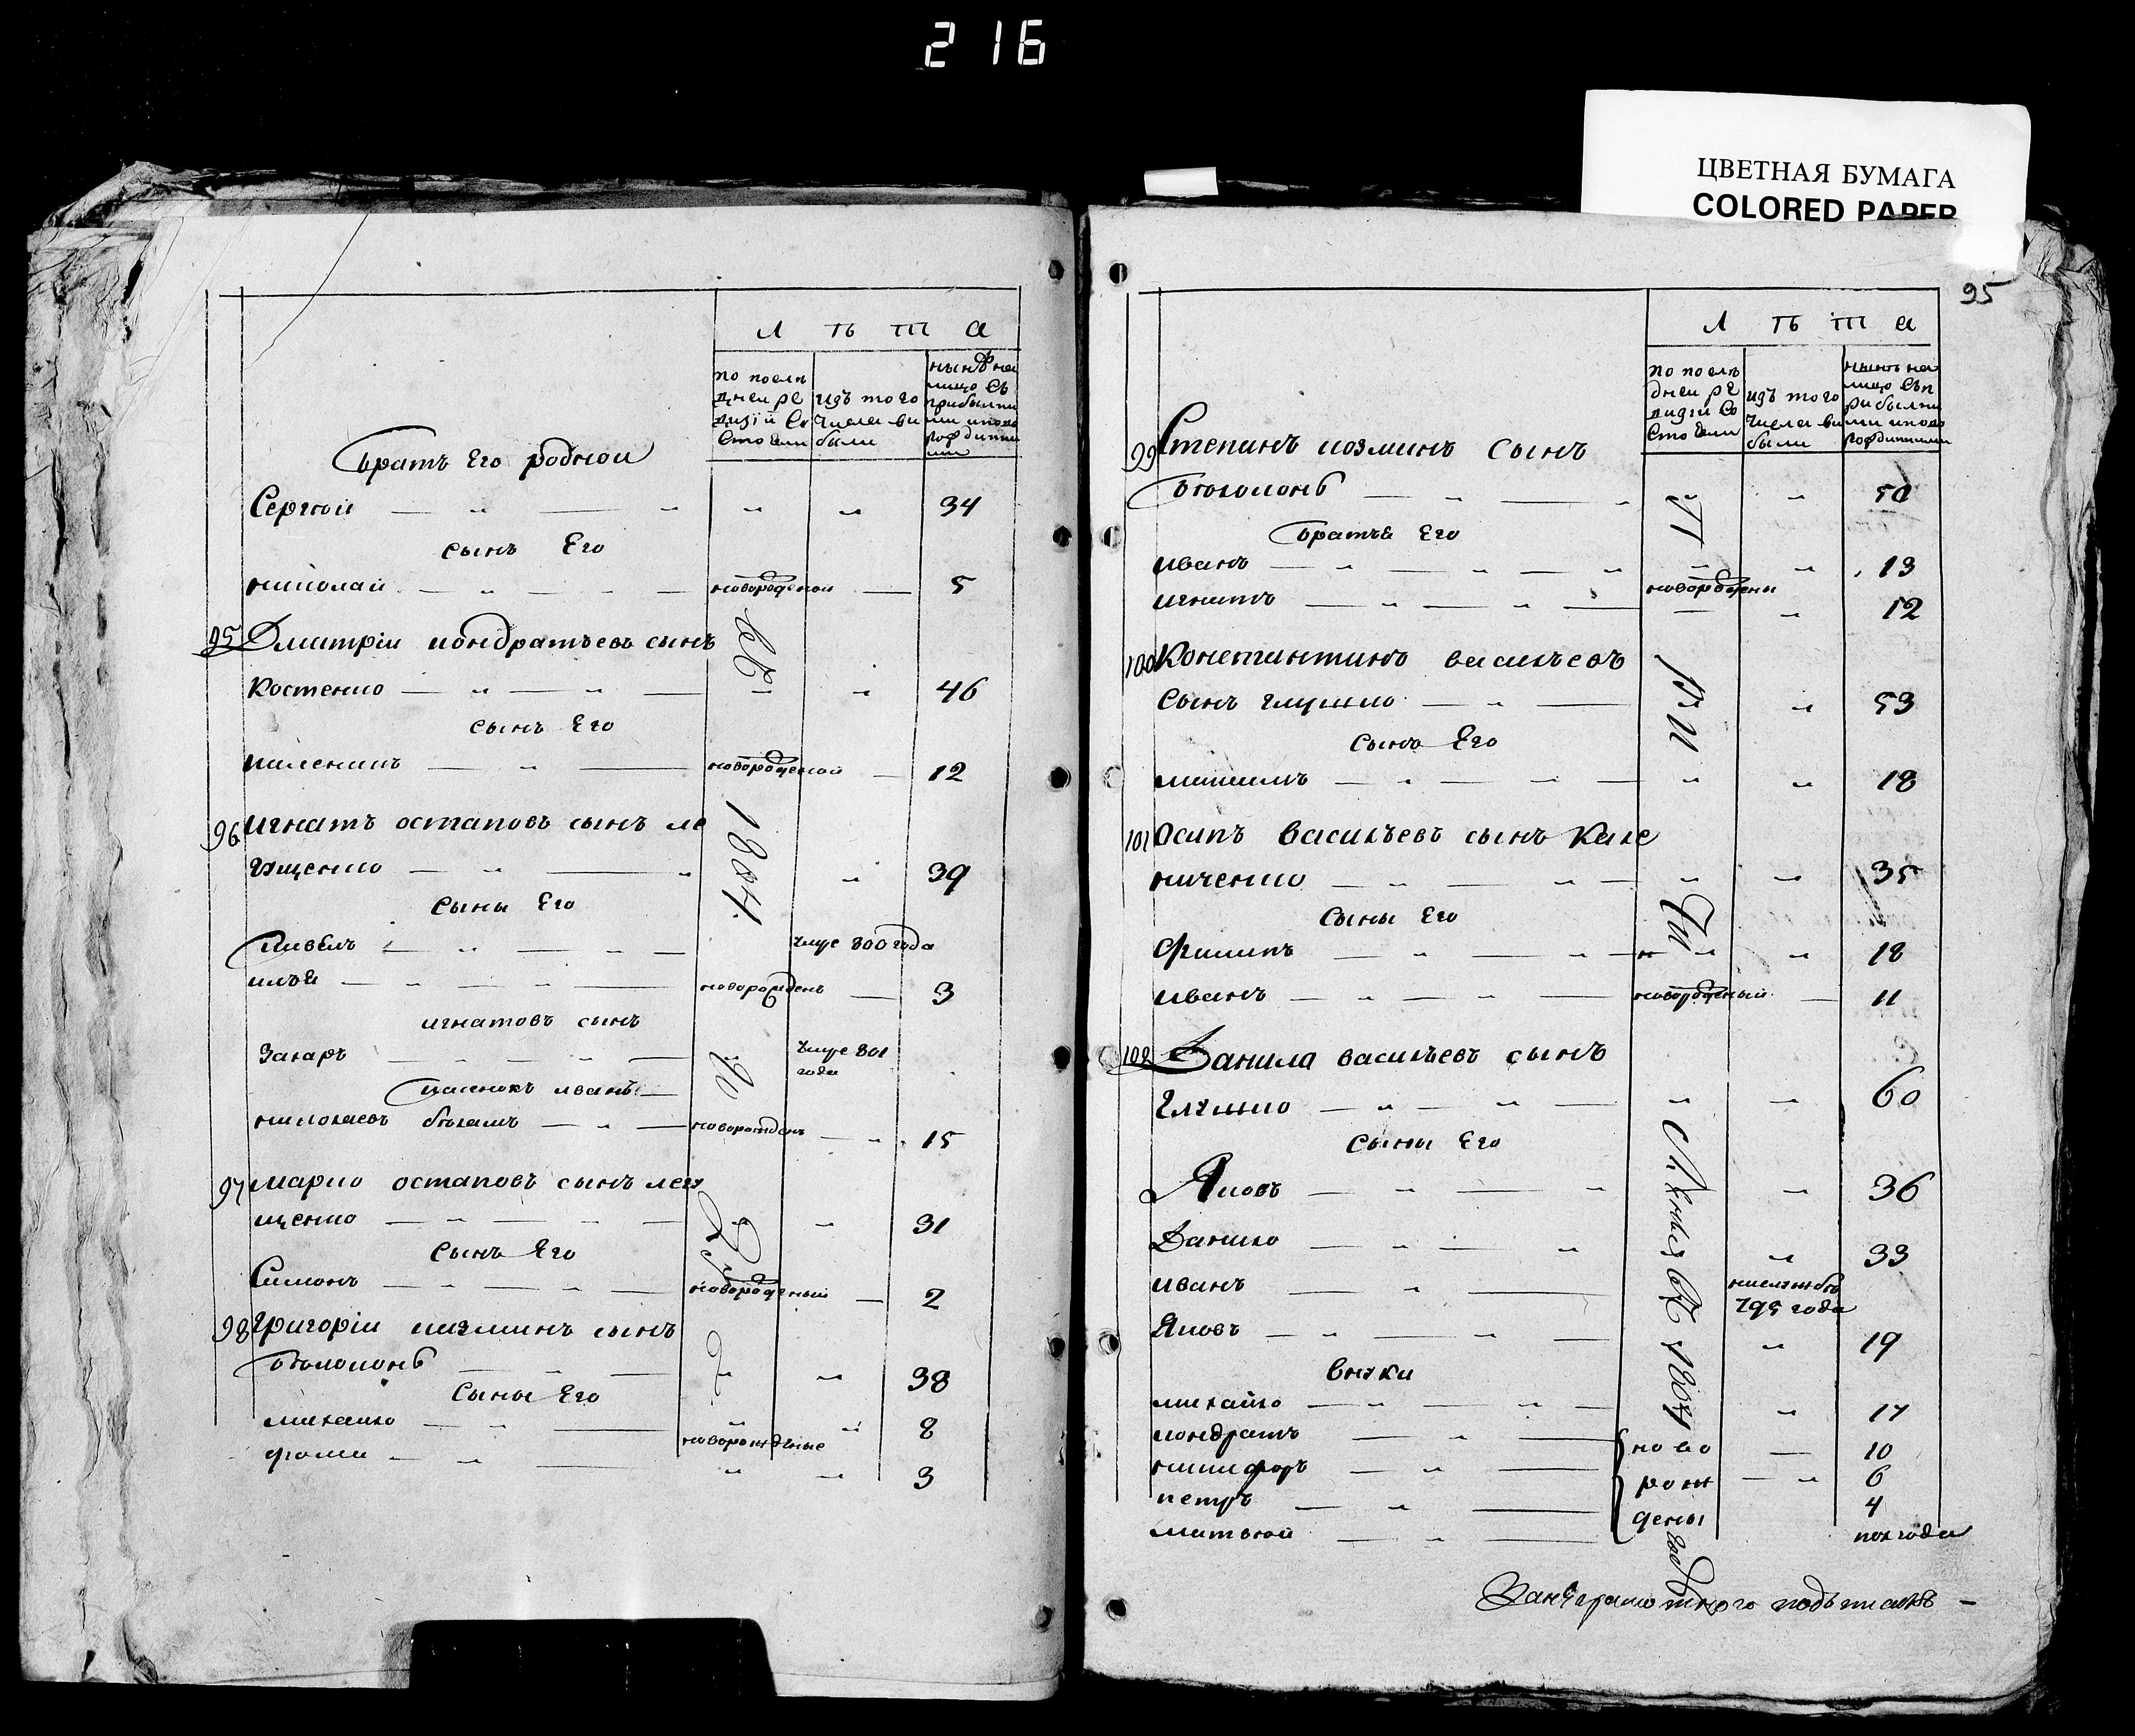 216
ЦВЕТНАЯ БУМАГА
COLORED PAPER
Л ѣ т а
по послѣ
дней ре
визіи со
стояли
изъ того
числа вы
были
нынѣ на
лицо съ
прибылы
ми и ново
рожденны
ми
братъ Его родной
Сергѣй 34
сынъ Его
николай новорожденой 5
95 Дмитріи кондратьевъ сынъ
Костенко 46
сынъ Его
новорожденой 12
96 игнатъ остаповъ сынъ ле
гущенко 39
Сыны Его
павелъ 800 года
илья новорожденъ 3
игнатовъ сынъ
Захаръ 801
года
пасенокъ иванъ
николаевъ новорожденъ 15
97 марко остаповъ сынъ легу
щенко 31
Сынъ Его
Симонъ новорожденый 2
98 григоріи кузминъ сынъ
38
Сыны Его
михайло 8
фома новорожденые 3
1804
95
Л ѣ т а
по послѣ
дней ре
визіи со
стояли
изъ того
числа вы
были
нынѣ на
лицо съ п
рибылы
ми и ново
рожденными
99 Степанъ козминъ сынъ
50
братья Его
иванъ 13
игнатъ новорождены 12
100 Константинъ васильевъ
сынъ глушко 53
сынъ Его
18
101 Осипъ васильевъ сынъ Кале
ниченко 35
Сыны Его
Филипъ 18
иванъ новорожденый 11
102 Данила васильевъ сынъ
Глушко 60
Сыны Его
Яковъ 36
Данило 33
иванъ
795 года
Яковъ 19
внуки
михайло 17
кондратъ ново 10
никифоръ рож 6
петръ дены 4
матвѣй пол года
1804